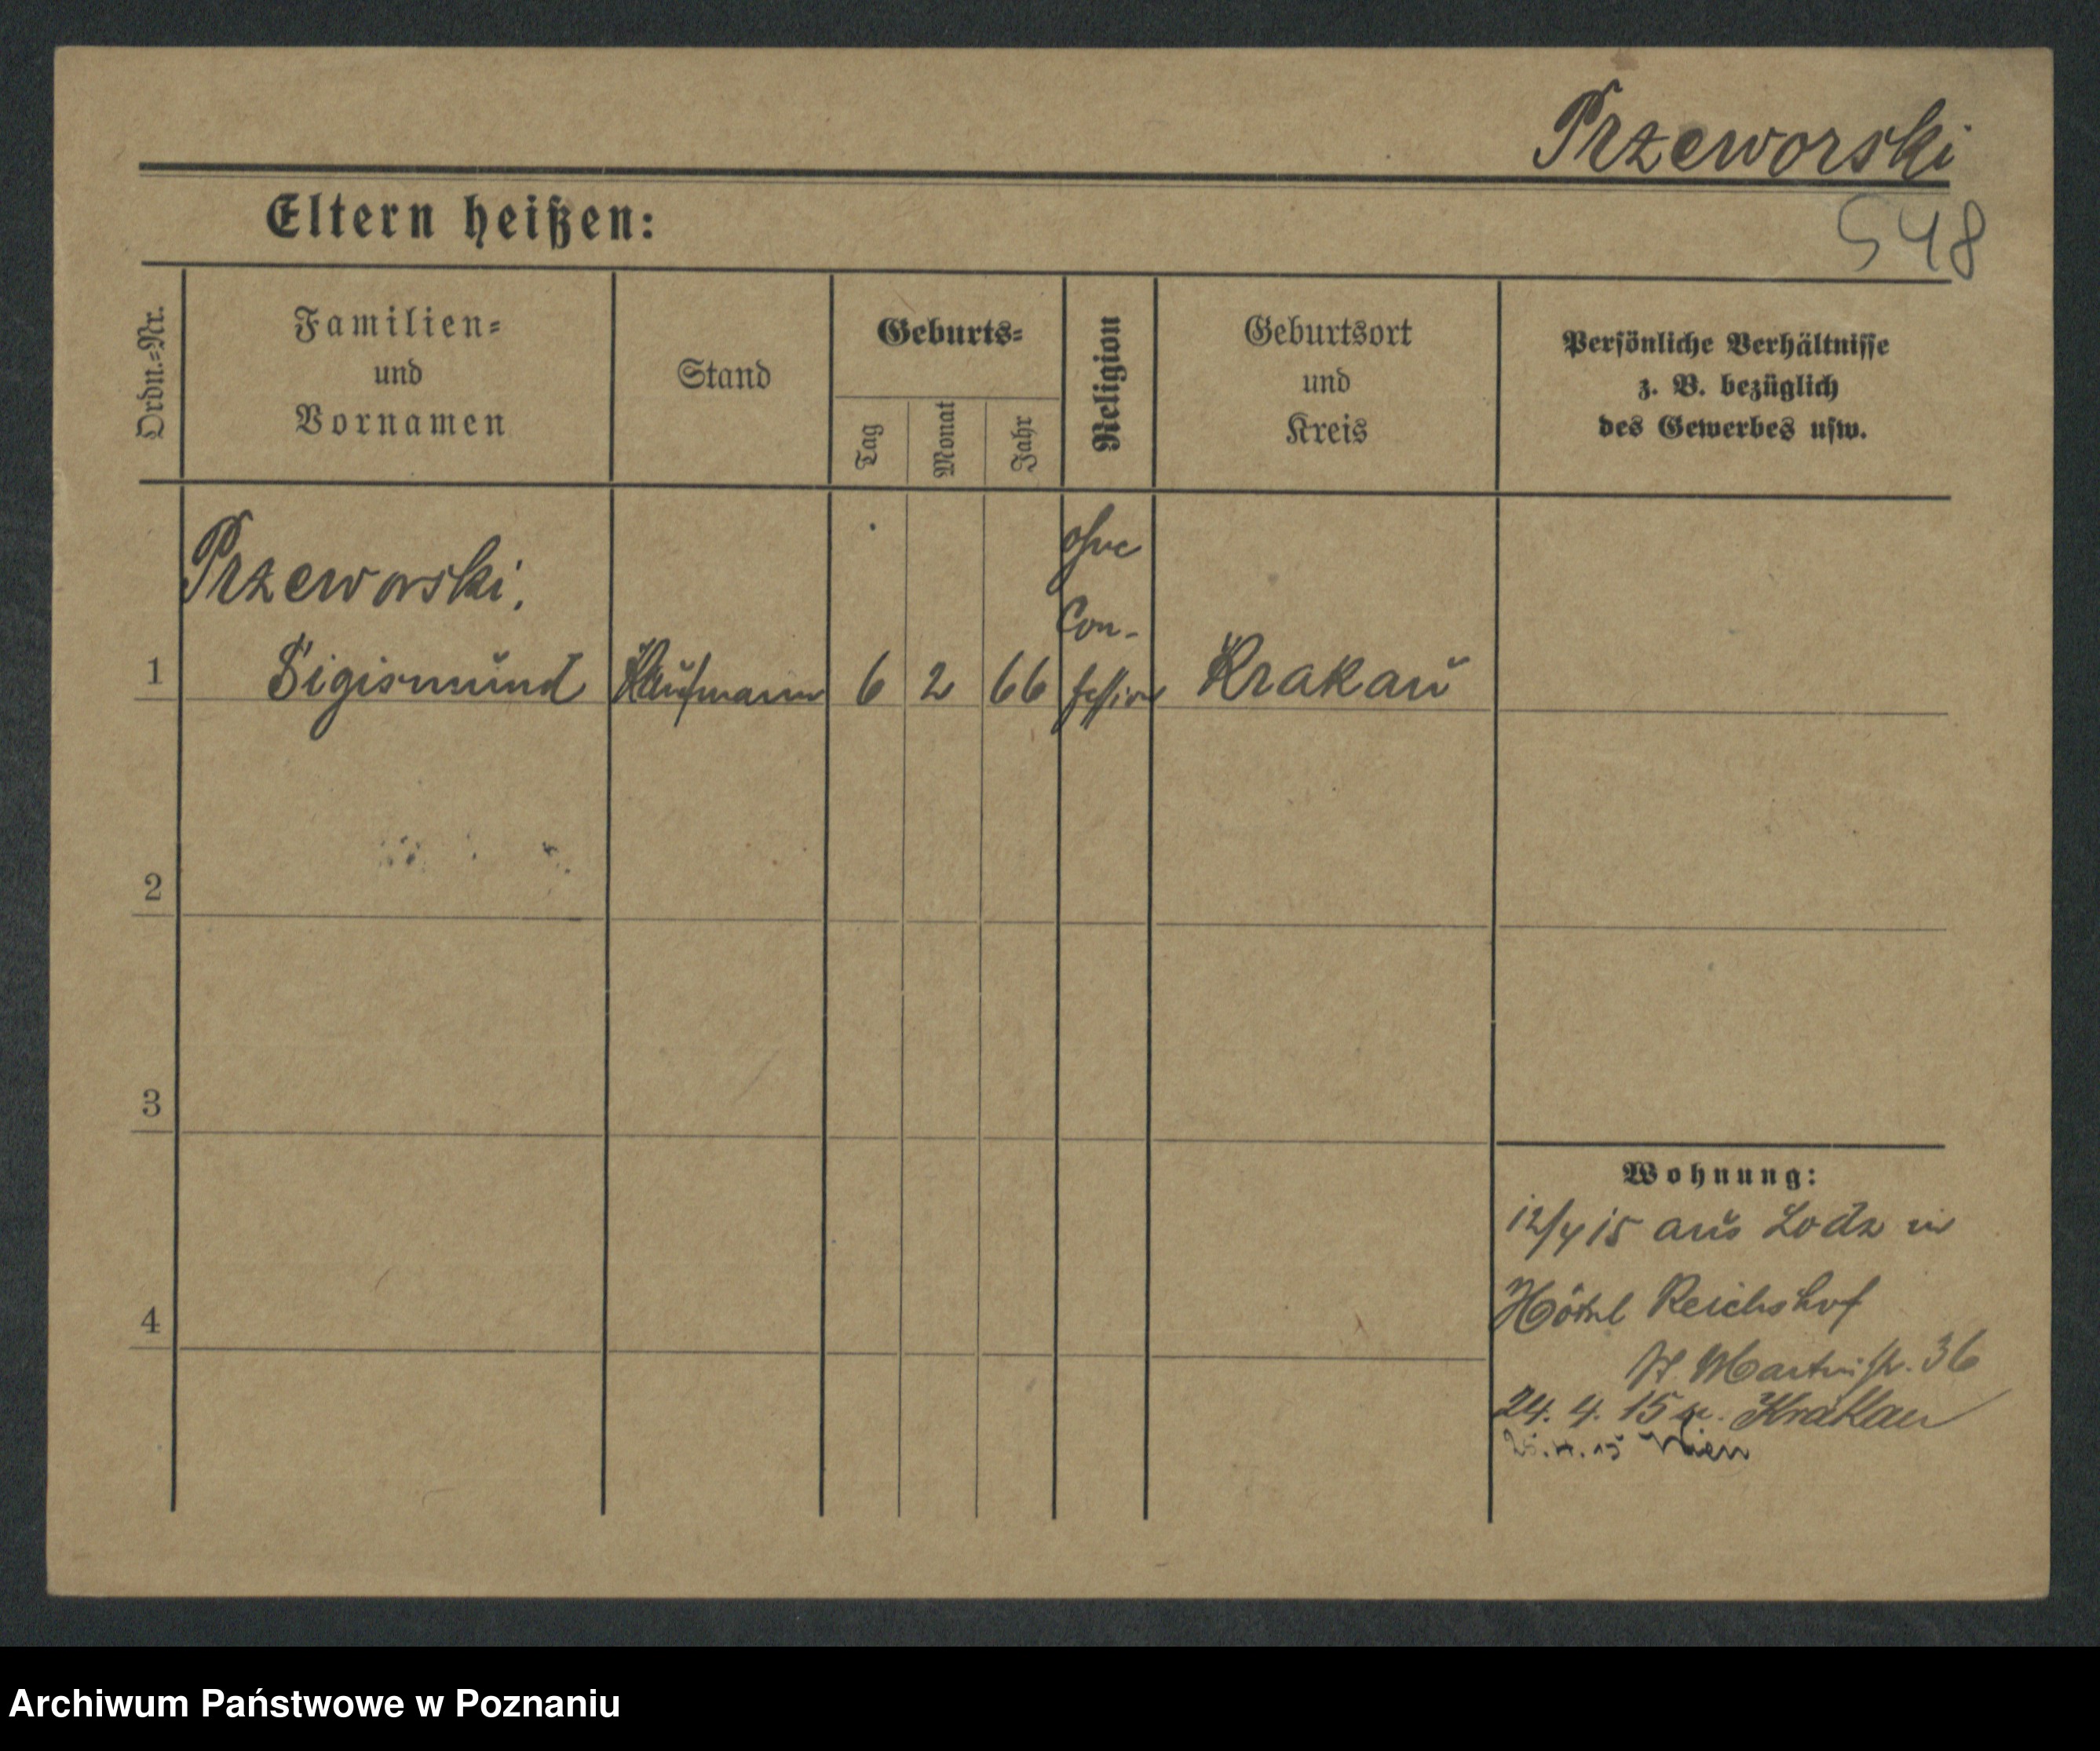 Przeworski
548
Eltern heißen:
Ordn.=Nr.
Familien=
und
Vornamen
Stand
Geburts=
Tag
Monat
Jahr
Religion
Geburtsort
und
Kreis
Persönliche Verhältnisse
z. B. bezüglich
des Gewerbes usw.
Przeworski,
ohne
Con-
1 Sigismund Kaufmann 6 2 66 fession Krakau
2
3
4
Wohnung:
12/4 15 aus Lodz in
Hôtel Reichshof
St. Martinstr. 36
24. 4. 15 Krakau
25. 4. 15 Wien
Archiwum Państwowe w Poznaniu